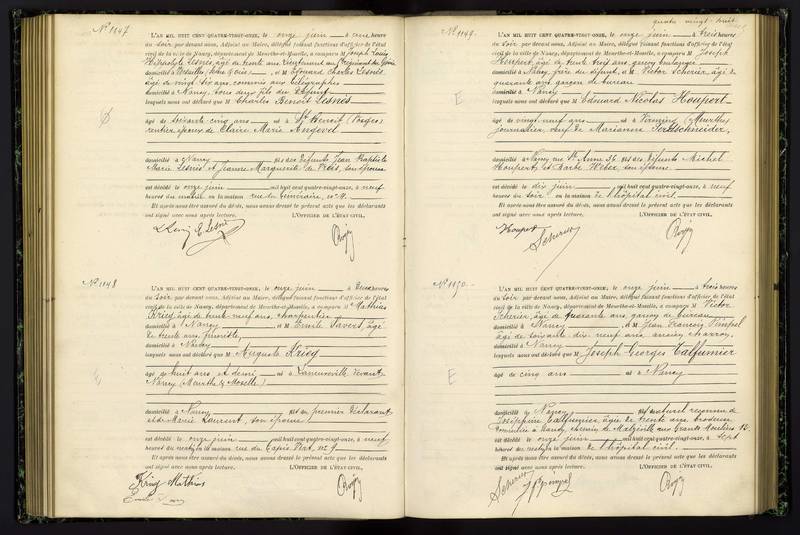 Nº 1147
L'AN MIL HUIT CENT QUATRE-VINGT-ONZE, le onze juin à une heure
du soir par devant nous, Adjoint au Maire, délégué faisant fonctions d'officier de l'état
civil de la ville de Nancy, département de Meurthe-et-Moselle, a comparu M Joseph Louis
Hippolyte Lesnés, âgé de trente ans, lieutenant au Régiment du Génie
domicilié à Versailles et M Edouard Charles Lesnés
âgé de vingt six ans, commis aux télégraphes
domicilié à Nancy, tous deux fils du défunt
lesquels nous ont déclaré que M Charles Benoît Lesnés
âgé de soixante cinq ans né à St Benoît (Vosges)
rentier époux de Claire Marie Angevel
domicilié à Nancy fils des défunts Jean Baptiste
Marie Lesnés et Jeanne Marguerite de Viels, son épouse
est décédé le onze juin mil huit cent quatre-vingt-onze, à neuf
heures du matin en la maison rue du Séminaire, nº 9.
Et après nous être assuré du décès, nous avons dressé le présent acte que les déclarants
ont signé avec nous après lecture. L'OFFICIER DE L'ÉTAT CIVIL,
Nº 1148
L'AN MIL HUIT CENT QUATRE-VINGT-ONZE, le onze juin à deux heures
du soir par devant nous, Adjoint au Maire, délégué faisant fonctions d'officier de l'état
civil de la ville de Nancy, département de Meurthe-et-Moselle, a comparu M Mathias
Krieg âgé de trente neuf ans, charpentier
domicilié à Nancy et M Emile Savers, âgé
de trente ans, fumiste,
domicilié à Nancy
lesquels nous ont déclaré que M Auguste Krieg
âgé de huit ans et demi né à Laneuveville devant
Nancy (Meurthe & Moselle)
domicilié à Nancy fils du premier déclarant
et de Marie Laurent, son épouse
est décédé le onze juin mil huit cent quatre-vingt-onze, à neuf
heures du matin en la maison rue du Tapis Vert, nº 9
Et après nous être assuré du décès, nous avons dressé le présent acte que les déclarants
ont signé avec nous après lecture. L'OFFICIER DE L'ÉTAT CIVIL,
Krieg Mathias
quatre vingt huit
Nº 1149
E
L'AN MIL HUIT CENT QUATRE-VINGT-ONZE, le onze juin à trois heures
du soir par devant nous, Adjoint au Maire, délégué faisant fonctions d'officier de l'état
civil de la ville de Nancy, département de Meurthe-et-Moselle, a comparu M Joseph
Houpert, âgé de trente trois ans, garçon boulanger
domicilié à Nancy, frère du défunt, et M Victor Scherier, âgé de
quarante ans, garçon de bureau
domicilié à Nancy
lesquels nous ont déclaré que M Edouard Nicolas Houpert
âgé de vingt neuf ans né à Vening (Meurthe)
journalier, veuf de Marianne
domicilié à Nancy rue Ste Anne 36 fils des défunts Michel
Houpert, et Barbe Weber, son épouse
est décédé le dix juin mil huit cent quatre-vingt-onze, à neuf
heures du soir en la maison de l'hôpital civil.
Et après nous être assuré du décès, nous avons dressé le présent acte que les déclarants
ont signé avec nous après lecture. L'OFFICIER DE L'ÉTAT CIVIL,
Houpert
Scherier
Nº 1150
E
L'AN MIL HUIT CENT QUATRE-VINGT-ONZE, le onze juin à trois heures
du soir par devant nous, Adjoint au Maire, délégué faisant fonctions d'officier de l'état
civil de la ville de Nancy, département de Meurthe-et-Moselle, a comparu M Victor
Scherier, âgé de quarante ans, garçon de bureau
domicilié à Nancy et M Jean François Pimpel
âgé de soixante dix neuf ans, ancien charron
domicilié à Nancy
lesquels nous ont déclaré que M Joseph Georges Talfumier
âgé de cinq ans né à Nancy
domicilié à Nancy fils naturel reconnu de
Joséphine Talfumier, âgée de trente ans, brodeuse
domiciliée à Nancy, chemin de Malzéville aux Grands Moulins 12.
est décédé le onze juin mil huit cent quatre-vingt-onze, à sept
heures du matin en la maison de l'hôpital civil.
Et après nous être assuré du décès, nous avons dressé le présent acte que les déclarants
ont signé avec nous après lecture. L'OFFICIER DE L'ÉTAT CIVIL,
Scherier